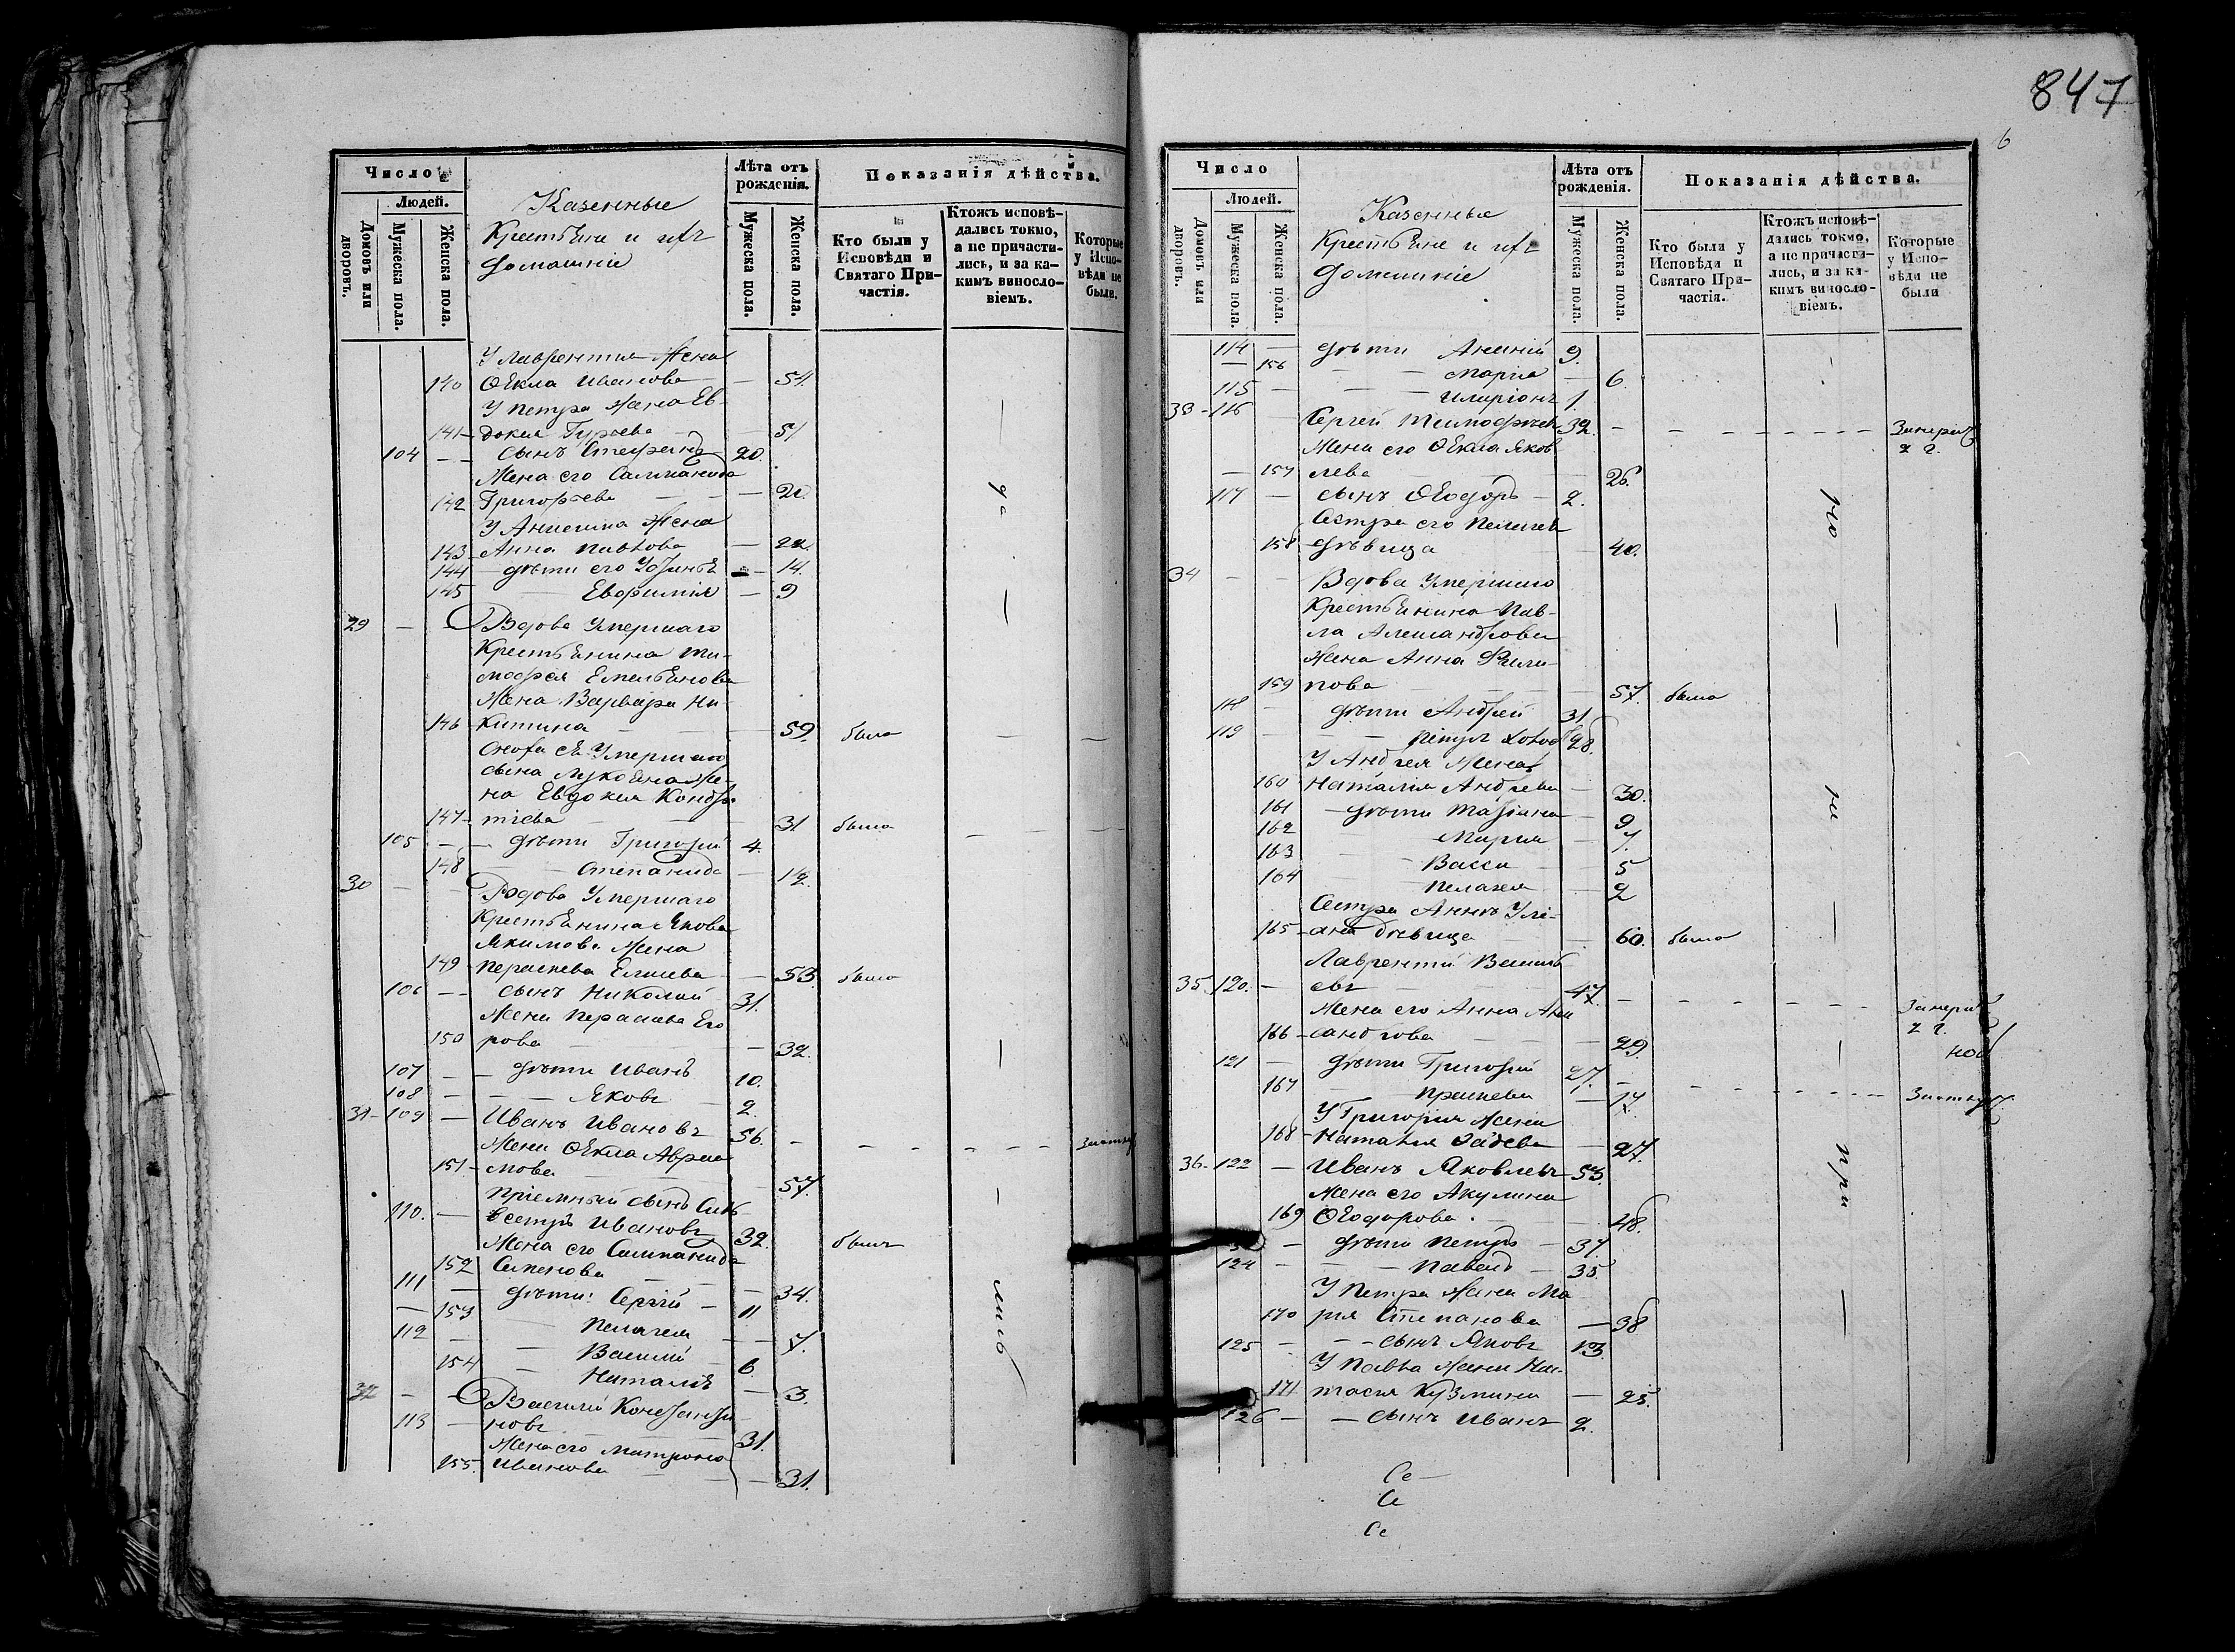 847
6
Число
Людей.
Домовъ или дворовъ.
Мужеска пола.
Женска пола.
Казенные
Крестьяне и ихъ
домашніе
Лѣта отъ рожденія.
Мужеска пола.
Женска пола.
Показанія дѣйства.
Кто были у Исповѣди и Святаго Причастія.
Ктожъ исповѣдались токмо, а не причастились, и за какимъ винословіемъ.
Которые у Исповѣди не были.
У Лаврентия жена
140 Ѳекла Иванова — 54.
У Петра жена Ев-
141 — докия Гурьева — 51
104 — — сынъ Стефанъ 20.
Жена его Саломанида
142 Григорьева — — — 20
У Анисима жена
143 — Анна Павлова — 22.
144 — дѣти его Устинья — 14.
145 — Евфимия — 9
29 — — Вдова Умершаго
Крестьянина Ти-
мофея Емельянова
Жена Варвара Ни-
146 — китина — 59. была — —
Сноха ея Умершаго
сына Лукояна же-
на Евдокия Кондра-
147 — тиева — 31 была — — —
105 — — дѣти Григорий 4.
148 — Степанида — 12.
30 — — Вдова Умершаго
Крестьянина Якова
Якимова Жена
149 — Парасковья Елисеева — 53. была
106 — — сынъ Николай 31.
Жена Параскева Его
150 рова — — 32.
107 — — дѣти Иванъ 10.
108 — — — Яковъ 2.
31 — 109 — Иванъ Ивановъ 56. — — — —
Жена Ѳекла Авраа
151 — мова — 57.
Приемный сынъ Сил-
110. — вестръ Ивановъ 32. былъ
Жена его Саломанида
152 Семенова — — — 34.
111 — дѣти: Сергѣй — 11
— 153 — Пелагея — — 7.
112 — — Василий — 6.
154 — Наталья — 3.
32 — — Василий Кондратьи-
113 — новъ — 31.
Жена его Матрона
155. Иванова — — 31.
да
лись
Число
Людей.
Домовъ или дворовъ.
Мужеска пола.
Женска пола.
Казенные
Крестьяне и ихъ
домашніе
Лѣта отъ рожденія.
Мужеска пола.
Женска пола.
Показанія дѣйства.
Кто были у Исповѣди и Святаго Причастія.
Ктожъ исповѣдались токмо, а не причастились, и за какимъ винословіемъ.
Которые у Исповѣди не были
114 — дѣти Ананий 9.
— 156 — — Мария — 6.
115 — — — Иларионъ 1.
33 — 116 Сергей Тимофѣевъ 32. — — — — — —
Жена его Ѳекла Яков
— 157 лева 26.
117 — сынъ Ѳеодоръ — 2.
Сестра его Пелагея
158 — дѣвица — 40.
34 — — Вдова Умершаго
Крестьянина Пав-
ла Александрова
Жена Анна Фили-
159 пова — 57. была
118 — дѣти Андрей 31.
119 — — Петръ холост 28.
У Андрея жена
160 Наталия Андреева — 30.
161 — дѣти Татьяна — 9
162 — Мария — 7.
163 — — Васса — 5
164 — Пелагея — 2
Сестра Анна Уль-
165 — ана дѣвица — 60. была
Лаврентий Василь
35. 120. — евъ — 47. — — — —
Жена его Анна Алек
166 — сандрова — — 29.
121 — дѣти Григорий 27. —
167 — Праскева — 17. — — — —
У Григория жена
168 — Наталья — 27.
36 — 122 — Иванъ Яковлевъ — 53.
Жена его Акулина
169 Ѳеодорова. — — 48.
— дѣти Петръ — 37.
124 — — — Павелъ — 35.
У Петра жена Ма
170 рия Степанова — 38
125 — — — сынъ Яковъ 13.
У Павла жена Нас-
171 тасия Кузмина — 25.
126 — — сынъ Иванъ 2.
при
Се —
Се
Се